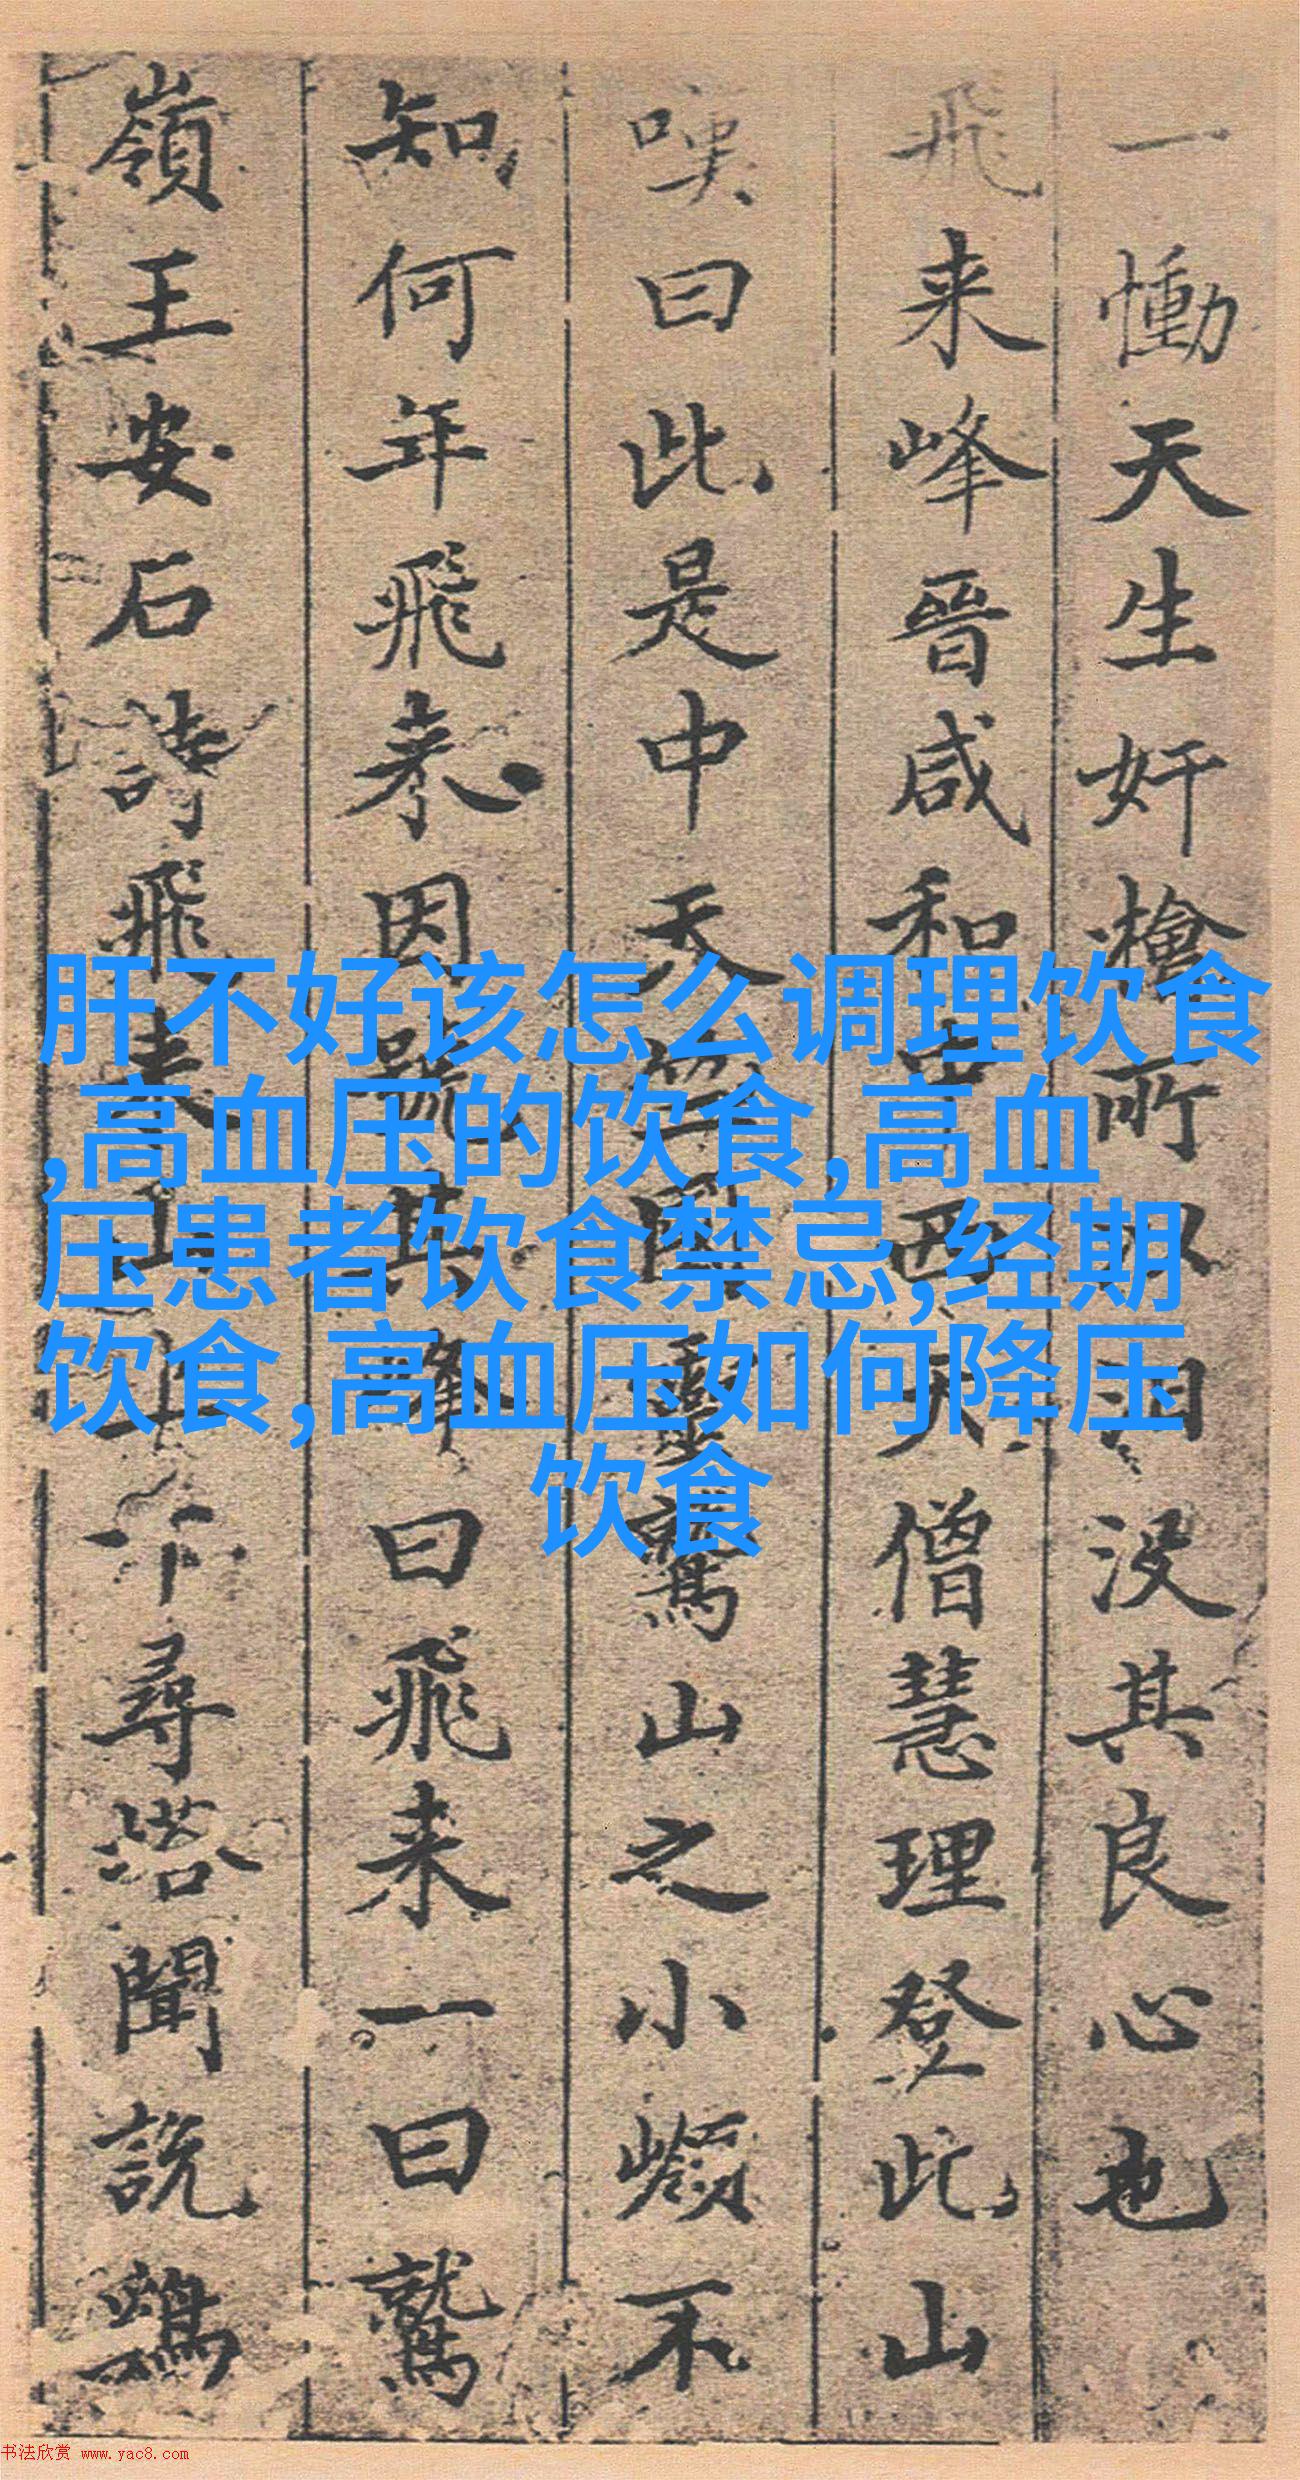 一慟天生奸檜所以汨没其良心也
飛来峰晉咸和中西天僧慧理登此山
嘆曰此是中天竺國靈鷲山之小嶺不
知何年飛来因號其峰曰飛来一曰鷲
嶺王安石詩飛来山上千尋塔聞説鷄
肝不好该怎么调理饮食
,高血压的饮食,高血
压患者饮食禁忌,经期
饮食,高血压如何降压
饮食
书法欣赏 www.yac8.com